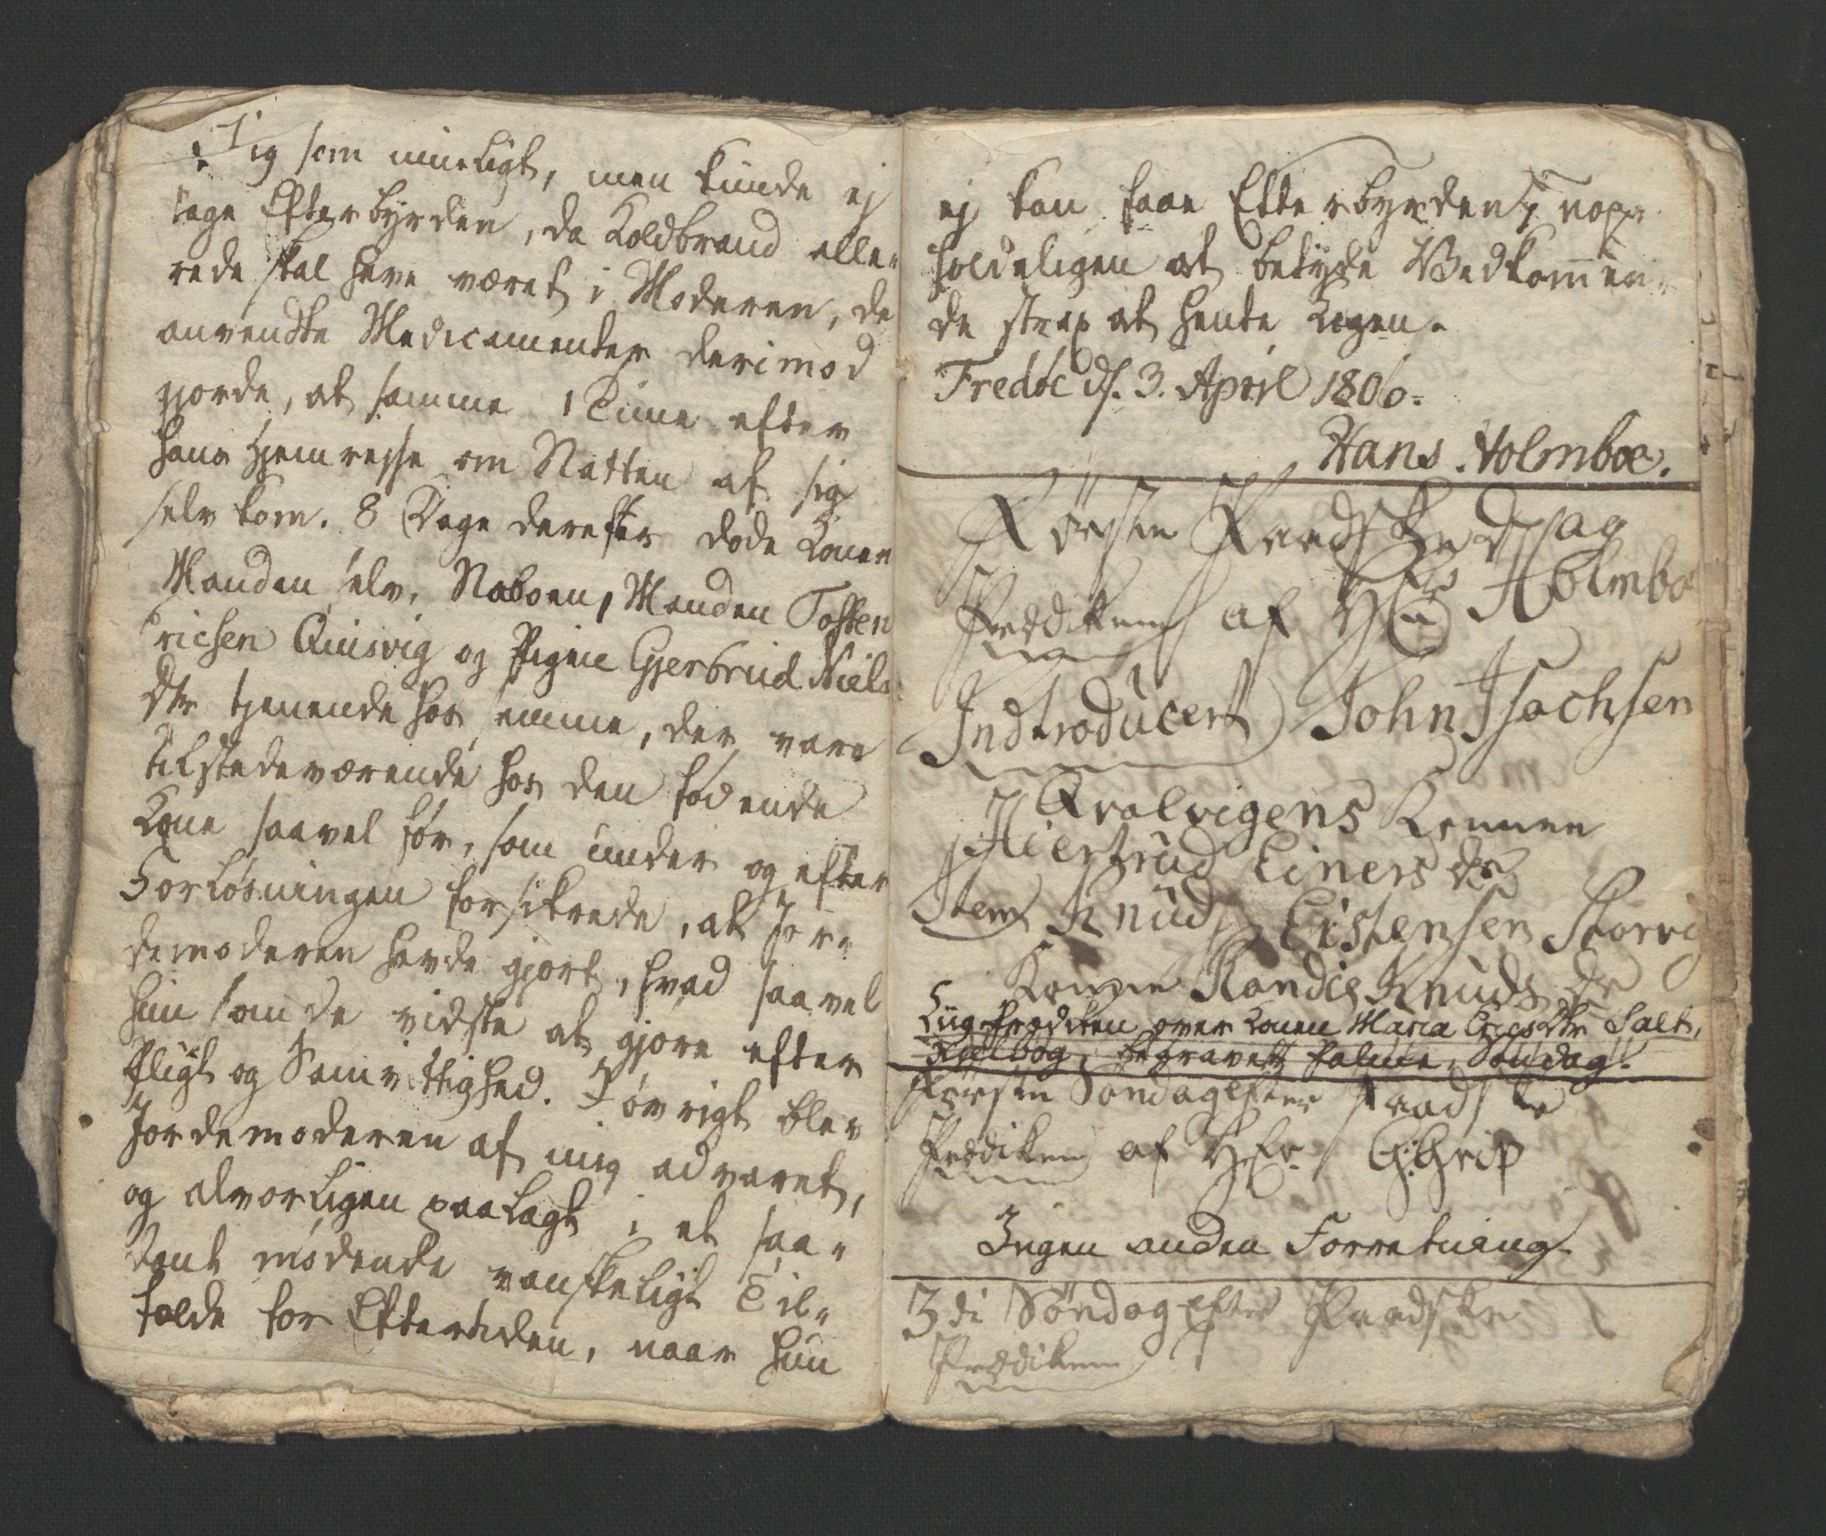 sig som mueligt, men kunde ej
tage Efterbyrden, da Koldbrand alle-
rede skal have været i Moderen, de
anvendte Medicamenter derimod
gjorde, at samme 1 Time efter
hans Hjemrejse om Natten af sig
selv kom. 8 Dage derefter døde Konen
Manden selv, Naboen, Manden Tosten
Ericsen Quisvig og Pigen Gjertrud Niels
dtr tjenende hos samme, der vare
tilstedeværende hos den fødende
Kone saavel før, som under og efter
Forløsningen forsikrede, at Jor-
demoderen havde gjort, hvad saavel
hun som de vidste at gjøre efter
Pligt og Samvittighed. I øvrigt blev
Jordemoderen af mig advaret,
og alvorligen paalagt i et saa-
dant mødende vanskeligt Til-
fælde for Eftertiden, naar hun
ej kan faae Efterbyrden,
holdeligen at betyde Vedkommen-
de strax at hente Legen.
Fredøe d. 3. April 1806.
Hans Holmboe.
Første Paadske Dag
Prædiken af Hr Holmboe
Indtroducert John Isachsen
Qvalvigens Konnen
Hiertrud Einers dr
Item Knud Eistensen Storvig
Konnen Randie Knuds dr
Liig-Prædiken over Konen Maria Ericsdtr Salt,
begravet Palme-Søndag.
Første Søndag efter Paadske
Prædiken af Hr G: Grip
Ingen anden Forretning.
3di Søndag efter Paadske
Prædiken